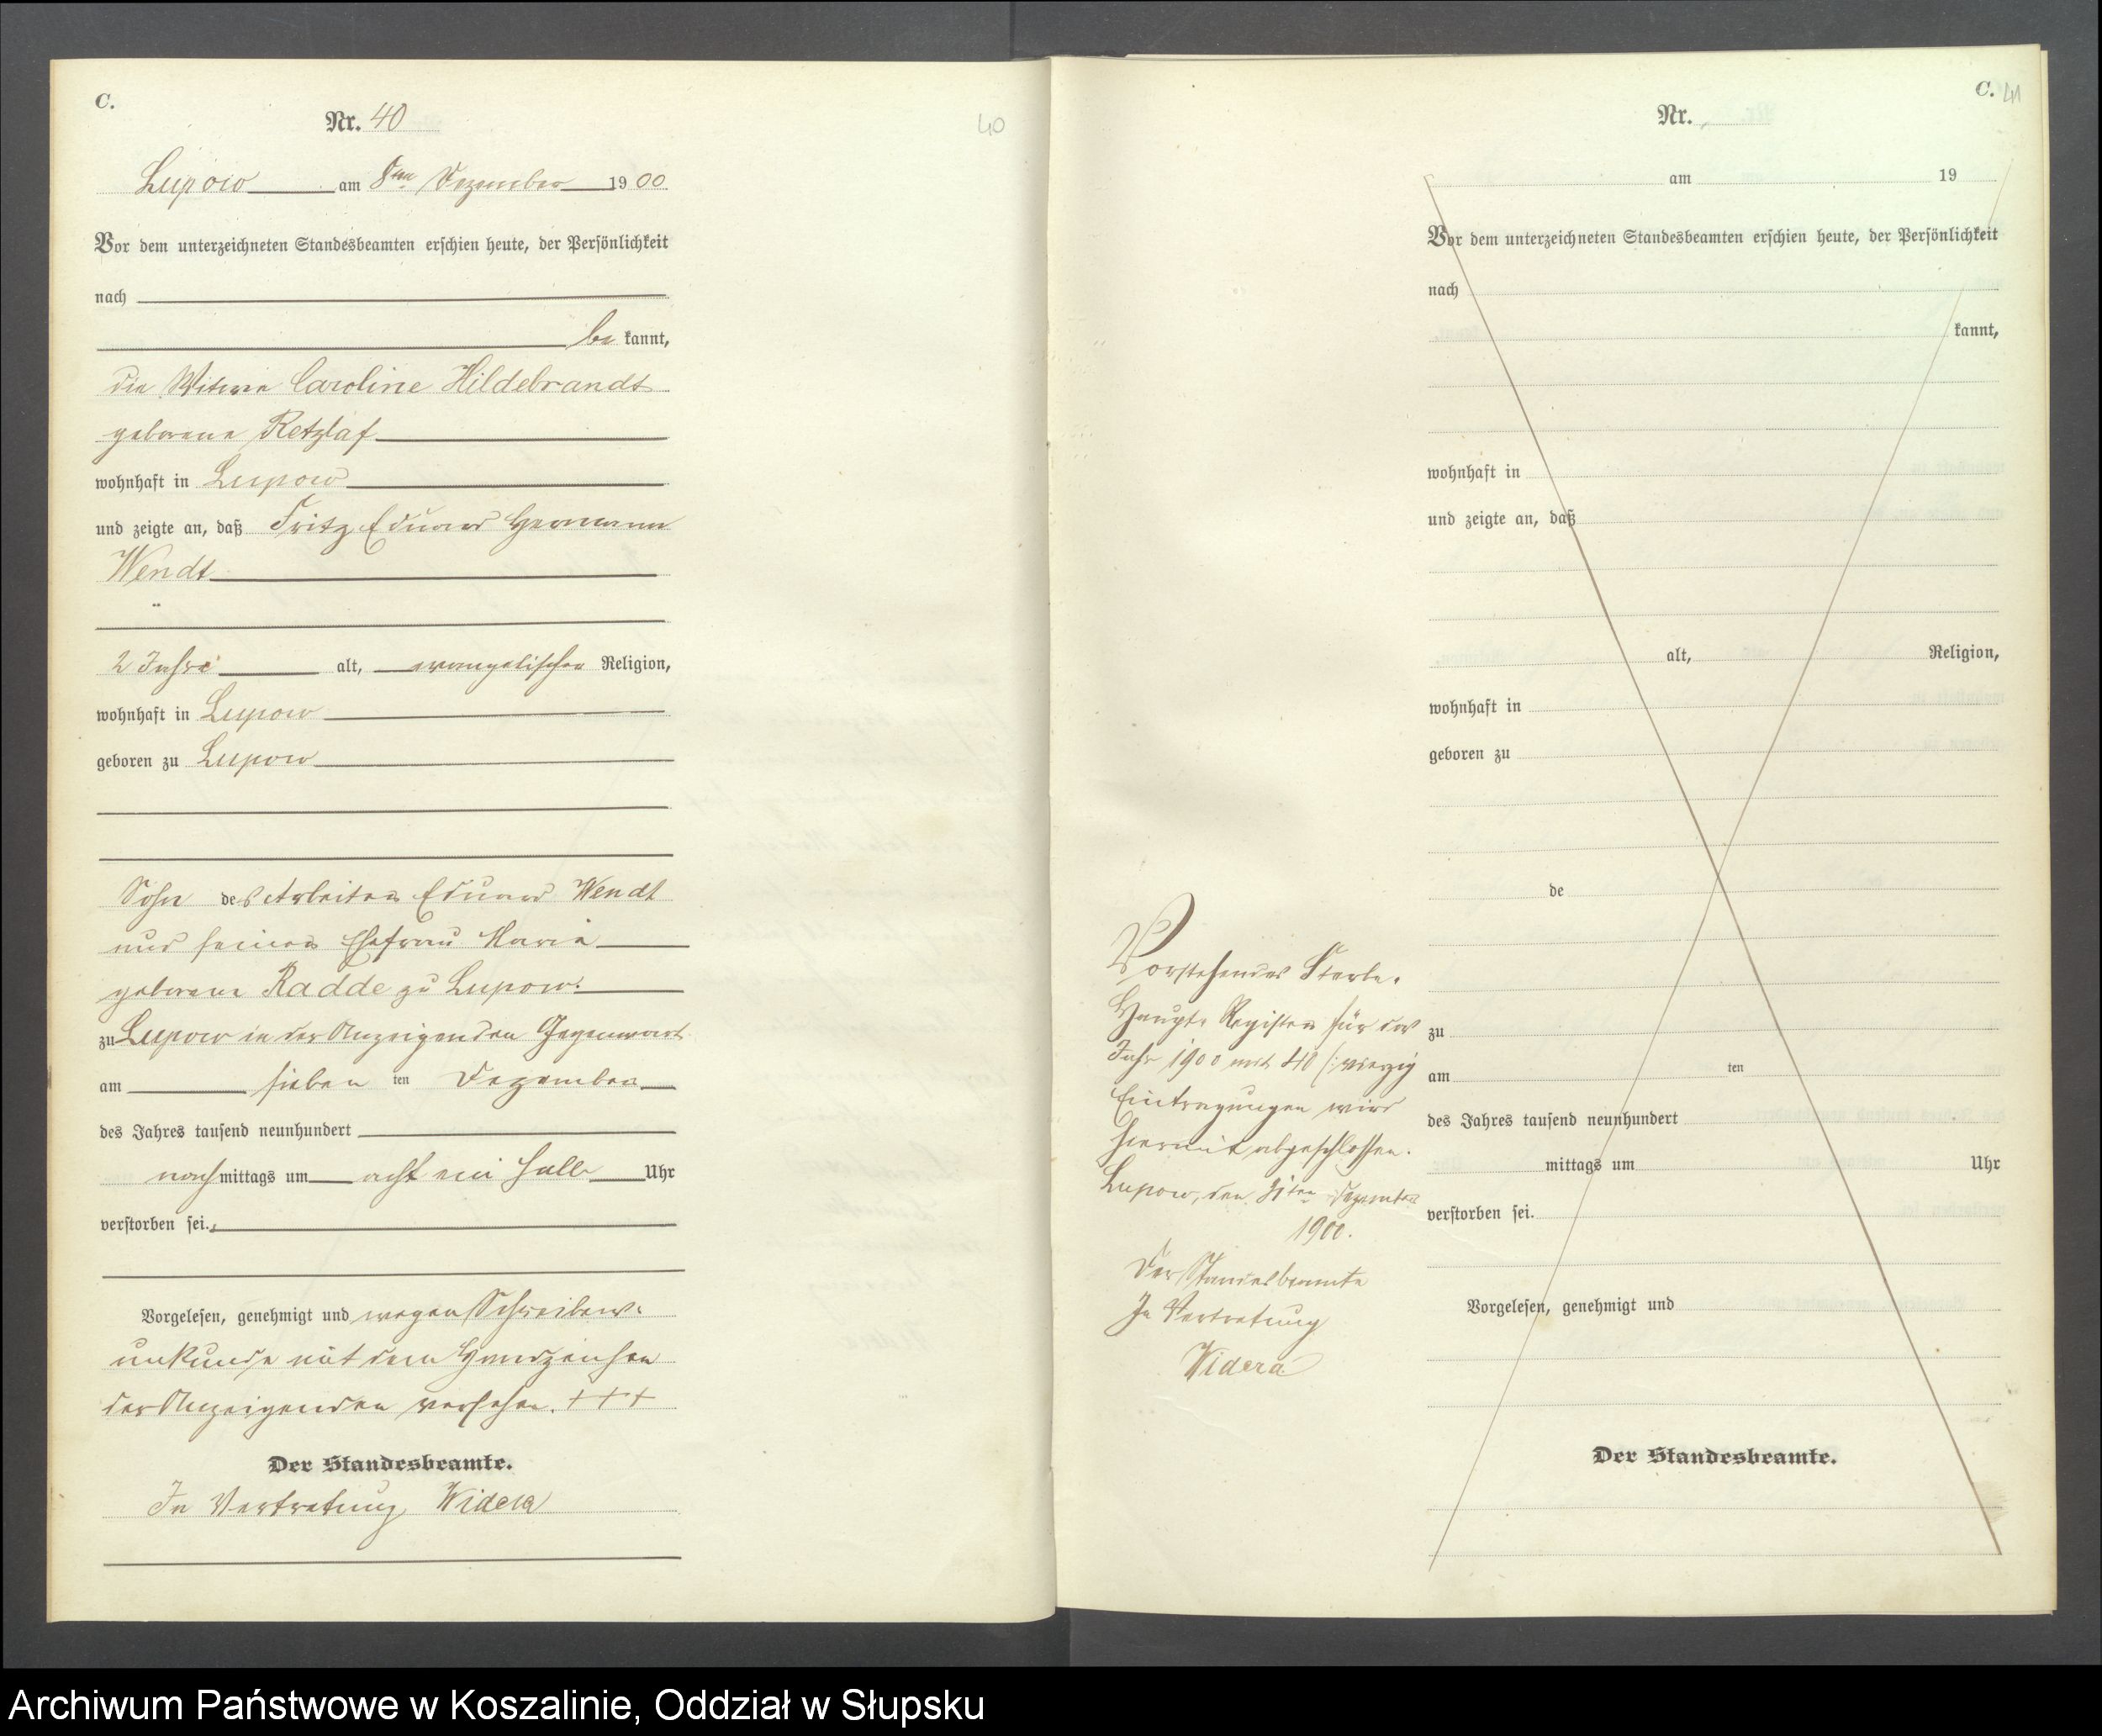 C.
Nr. 40
40
Lupow am 8ten Dezember 1900
Vor dem unterzeichneten Standesbeamten erschien heute, der Persönlichkeit
nach
be kannt,
die Witwe Caroline Hildebrandt
geborene Retzlaf
wohnhaft in Lupow
und zeigte an, daß Fritz Eduard Hermann
Wendt
2 Jahre alt, evangelischer Religion,
wohnhaft in Lupow
geboren zu Lupow
Sohn des Arbeiters Eduard Wendt
und seiner Ehefrau Maria
geborene Radde zu Lupow.
zu Lupow in der Anzeigenden Gegenwart
am sieben ten Dezember
des Jahres tausend neunhundert
nachmittags um acht ein halb Uhr
verstorben sei.
Vorgelesen, genehmigt und wegen Schreibens-
unkunde mit dem Handzeichen
der Anzeigenden versehen. +++
Der Standesbeamte.
In Vertretung Widera
C. 41
Nr.
am 19
Vor dem unterzeichneten Standesbeamten erschien heute, der Persönlichkeit
nach
kannt,
wohnhaft in
und zeigte an, daß
alt, Religion,
wohnhaft in
geboren zu
de
zu
am ten
des Jahres tausend neunhundert
mittags um Uhr
verstorben sei.
Vorgelesen, genehmigt und
Der Standesbeamte.
Vorstehendes Sterbe-
Haupt-Register für das
Jahr 1900 mit 40 /: vierzig
Eintragungen wird
hiermit abgeschlossen.
Lupow, den 31ten Dezember
1900.
Der Standesbeamte
In Vertretung
Widera
Archiwum Państwowe w Koszalinie, Oddział w Słupsku